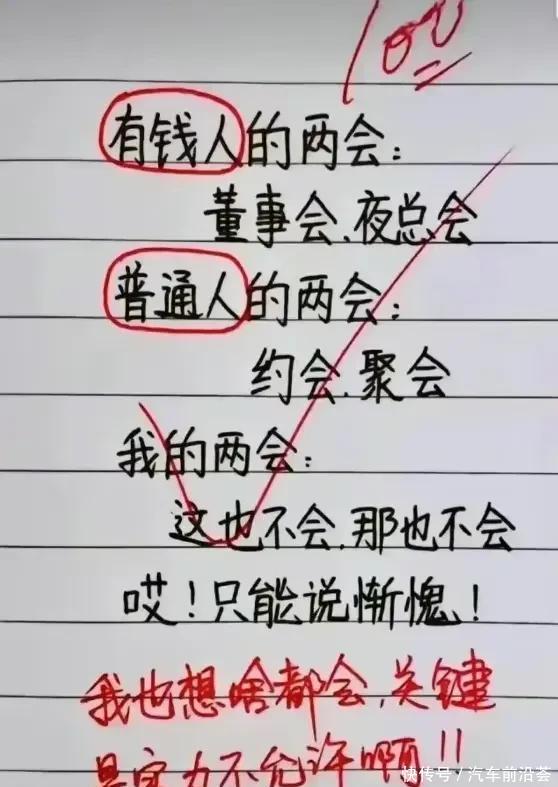 100
有钱人的两会：
董事会、夜总会
普通人的两会：
约会、聚会
我的两会：
这也不会、那也不会
哎！只能说惭愧！
我也想啥都会，关键
是实力不允许啊！！
快传号／汽车前沿荟